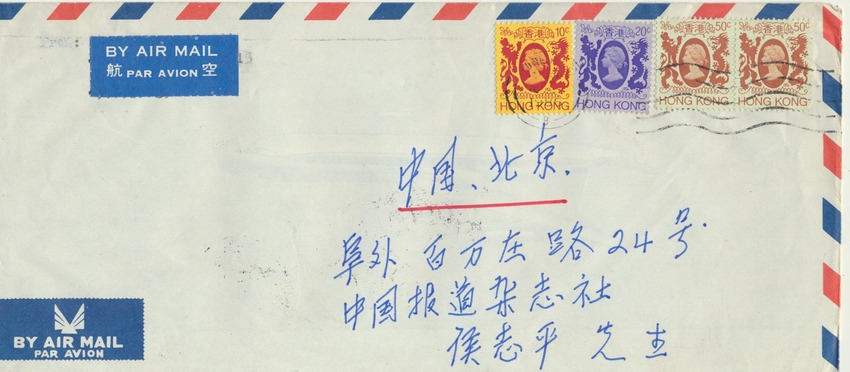 BY AIR MAIL
航 PAR AVION 空
香港 10c
HONG KONG
香港 20c
HONG KONG
香港 50c
HONG KONG
香港 50c
HONG KONG
中国、北京.
阜外 百万庄路24号.
中国报道杂志社
侯志平 先生
BY AIR MAIL
PAR AVION